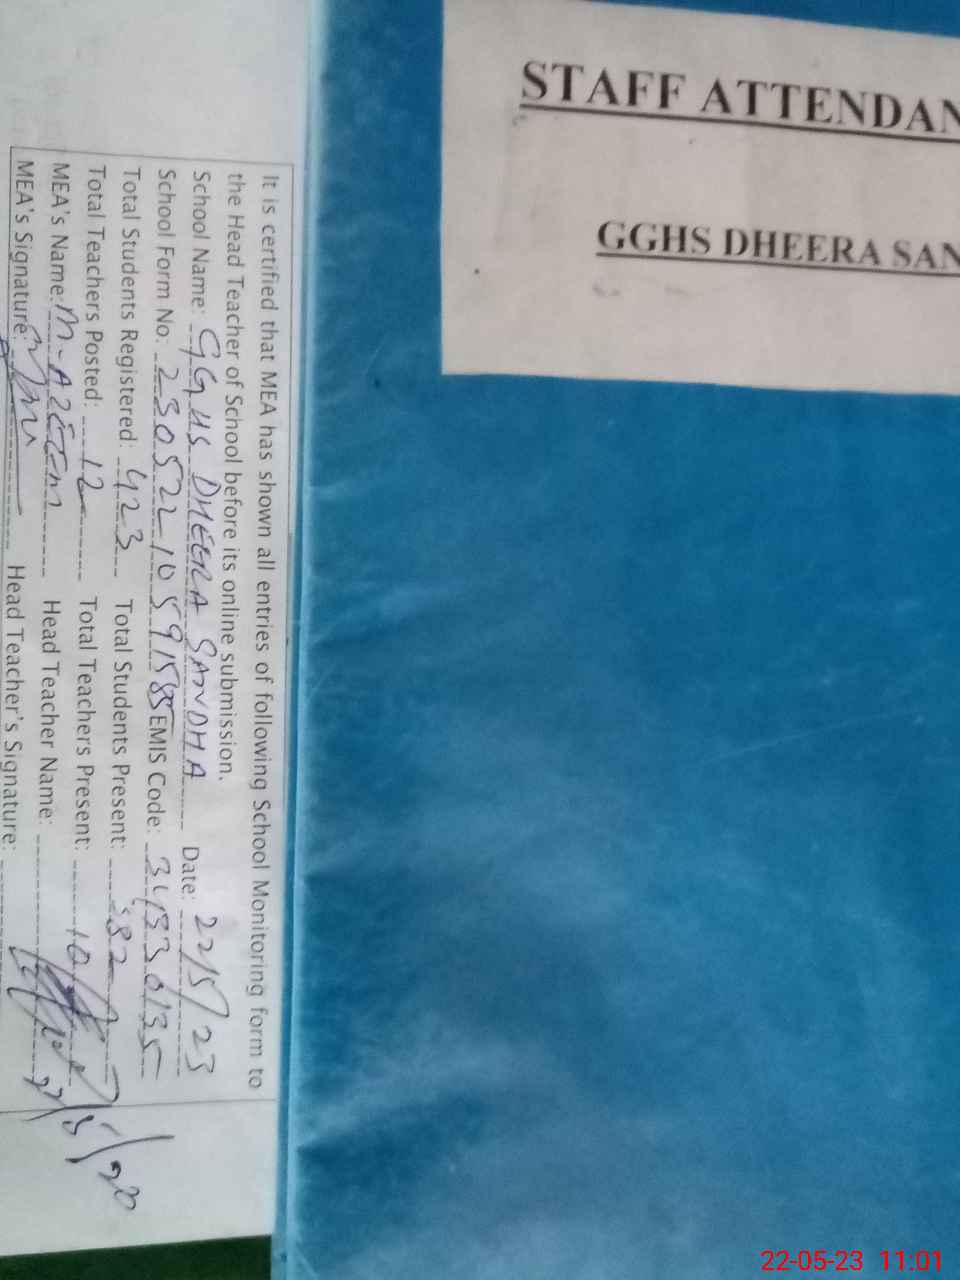 STAFF ATTENDAN
GGHS DHEERA SAN
It is certified that MEA has shown all entries of following School Monitoring form to
the Head Teacher of School before its online submission.
School Name: GGHS DHEERA SANDHA Date: 22/5/23
School Form No. 23052210591585 EMIS Code: 34330135
Total Students Registered: 423 Total Students Present: 382
Total Teachers Posted: 12 Total Teachers Present: 10
MEA's Name: M-AZEEM Head Teacher Name:
MEA's Signature: Head Teacher's Signature:
22-05-23 11:01